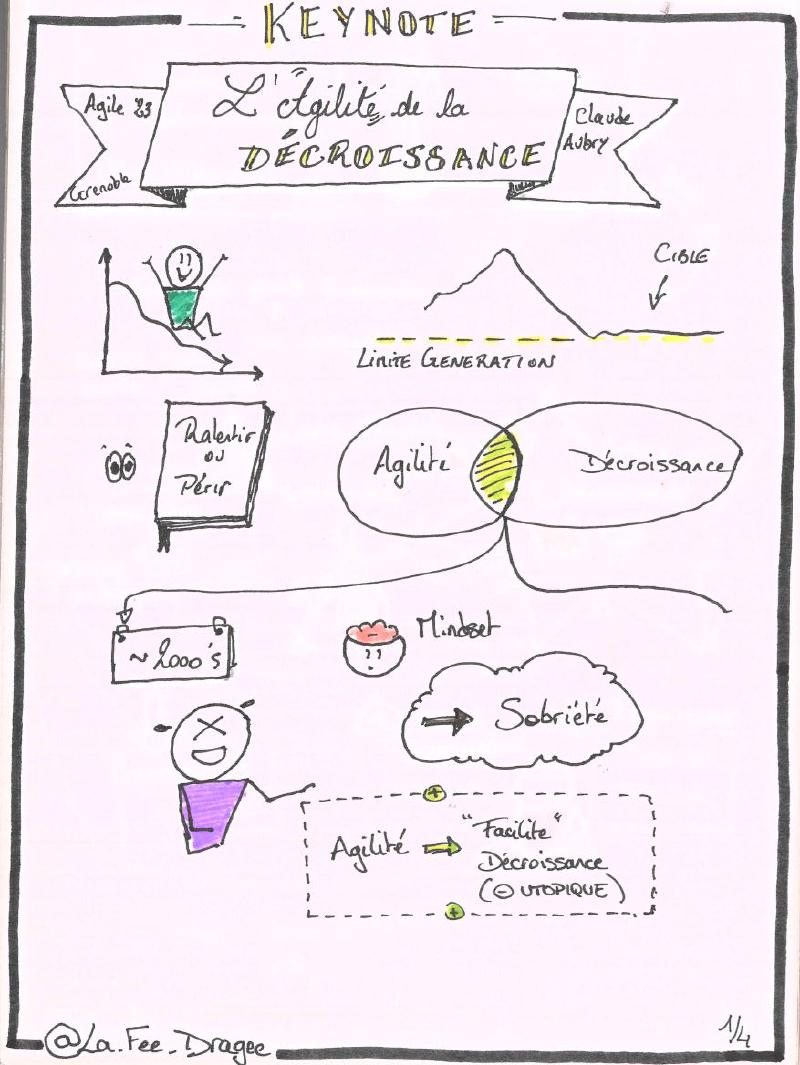 KEYNOTE
Agile 23
Grenoble
L'Agilité de la
DÉCROISSANCE
Claude
Aubry
CIBLE
LIMITE GENERATION
Ralentir
ou
Périr
Agilité
Décroissance
~ 2000's
Mindset
Sobriété
Agilité
"Facilite"
Décroissance
(⊖ UTOPIQUE)
@La.Fee_Dragee
1/4